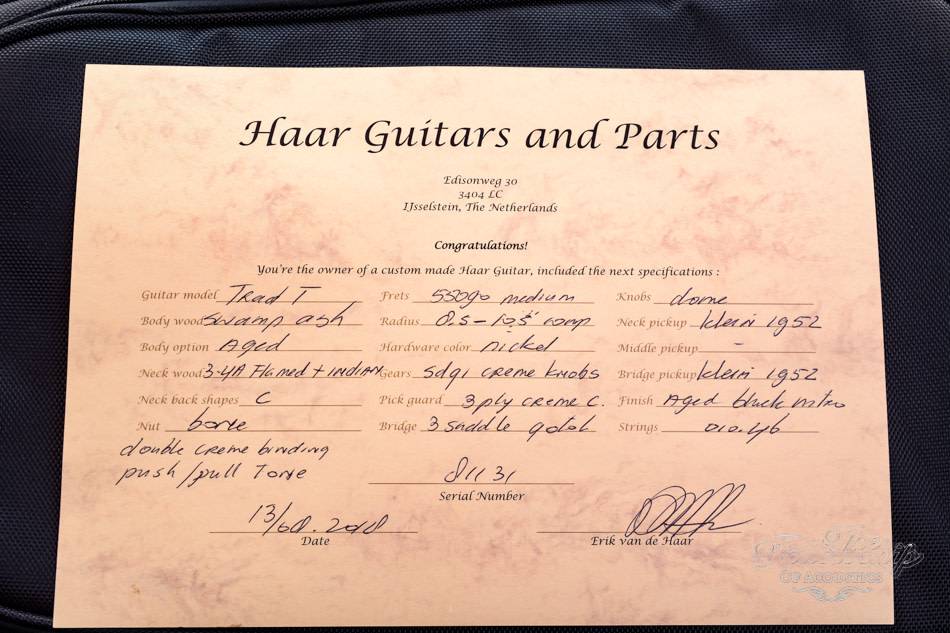 Haar Guitars and Parts
Edisonweg 30
3404 LC
IJsselstein, The Netherlands
Congratulations!
You're the owner of a custom made Haar Guitar, included the next specifications :
Guitar model Trad T Frets 55090 medium Knobs dome
Body wood Swamp ash Radius 8.5 - 10.5" comp Neck pickup Klein 1952
Body option Aged Hardware color nickel Middle pickup -
Neck wood 3-4A Flamed + INDIAN Gears sd91 creme knobs Bridge pickup Klein 1952
Neck back shapes C Pick guard 3 ply creme C. Finish Aged black nitro
Nut bone Bridge 3 saddle gotoh Strings 010.46
double creme binding
push/pull Tone
81131
Serial Number
13/08.2018
Date Erik van de Haar
OF ACOUSTICS